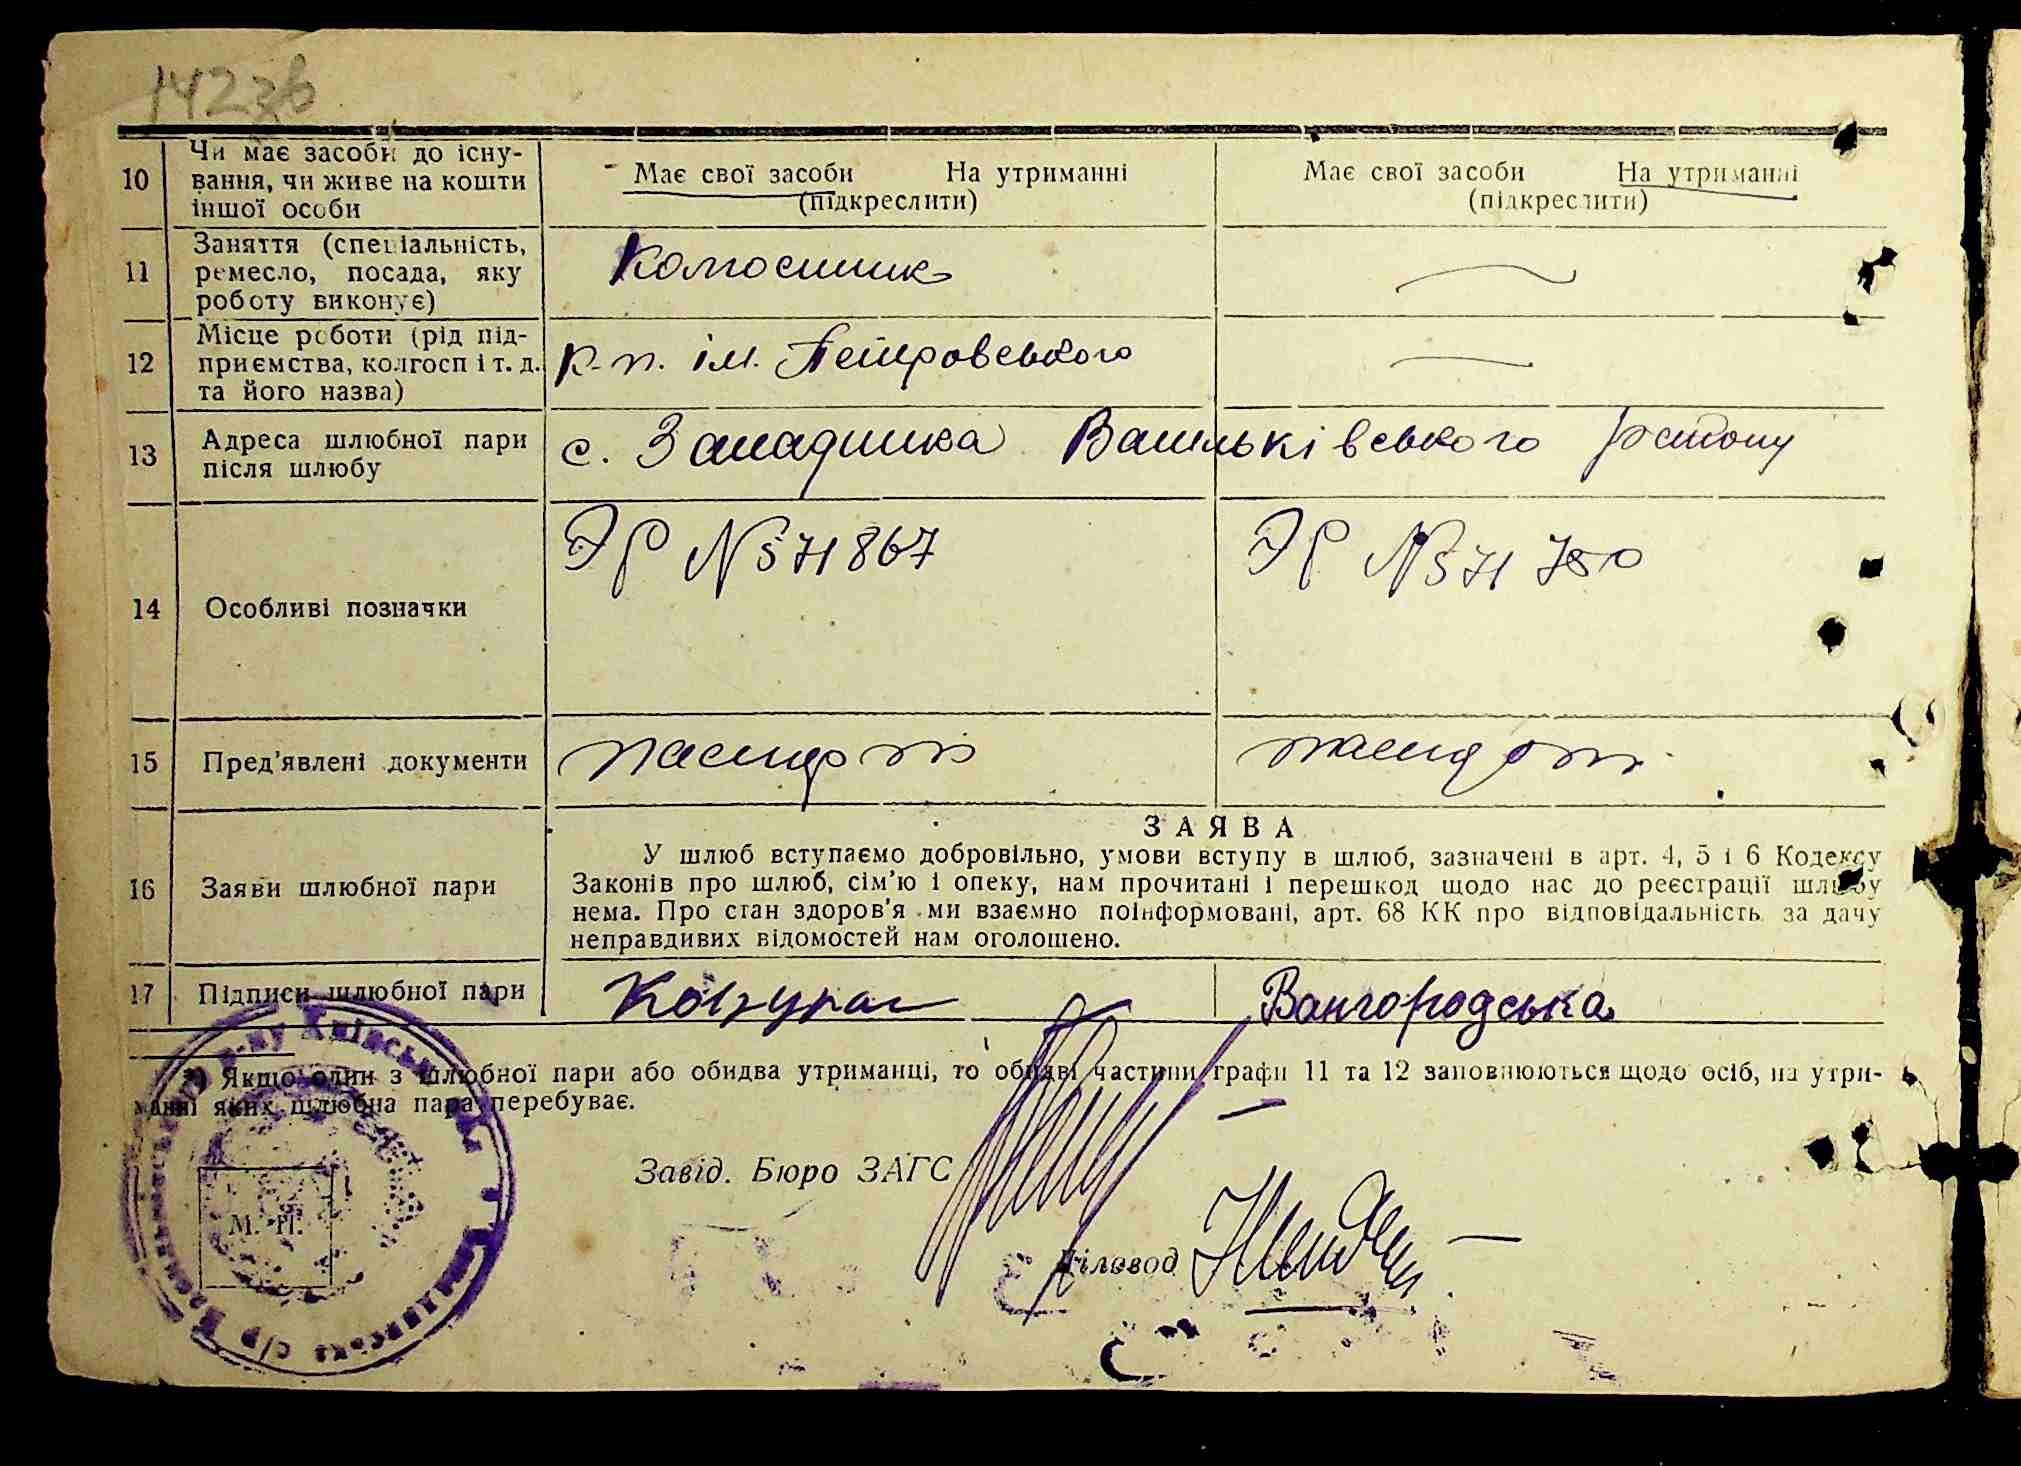 142зв
10
Чи має засоби до існу-
вання, чи живе на кошти
іншої особи
Має свої засоби На утриманні
(підкреслити)
Має свої засоби На утриманні
(підкреслити)
11
Заняття (спеціальність,
ремесло, посада, яку
роботу виконує)
Колгоспник
12
Місце роботи (рід під-
приємства, колгосп і т. д.
та його назва)
ім. Петровського
13
Адреса шлюбної пари
після шлюбу
с. Западинка Васильківського району
14
Особливі позначки
ЭР № 571867
ЭР № 571780
15
Пред'явлені документи
паспорт
паспорт
16
Заяви шлюбної пари
ЗАЯВА
У шлюб вступаємо добровільно, умови вступу в шлюб, зазначені в арт. 4, 5 і 6 Кодексу
Законів про шлюб, сім'ю і опеку, нам прочитані і перешкод щодо нас до реєстрації шлюбу
нема. Про стан здоров'я ми взаємно поінформовані, арт. 68 КК про відповідальність за дачу
неправдивих відомостей нам оголошено.
17
Підписи шлюбної пари
Вангородська
Якщо один з шлюбної пари або обидва утриманці, то обидві частини графи 11 та 12 заповнюються щодо осіб, на утри-
манні яких шлюбна пара перебуває.
Завід. Бюро ЗАГС
Діловод
М. П.